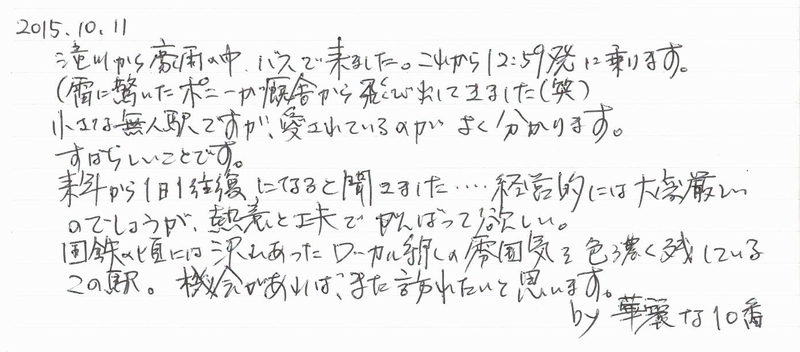 2015.10.11
滝川から豪雨の中、バスで来ました。これから12:59発に乗ります。
(雷に驚いたポニーが厩舎から飛び出してきました(笑)
小さな無人駅ですが、愛されているのがよく分かります。
すばらしいことです。
来年から1日1往復になると聞きました‥‥経営的には大変厳しい
のでしょうが、熱意と工夫でがんばって欲しい。
国鉄の頃には沢山あったローカル線の雰囲気を色濃く残している
この駅。機会があれば、また訪れたいと思います。
by 華麗な10番